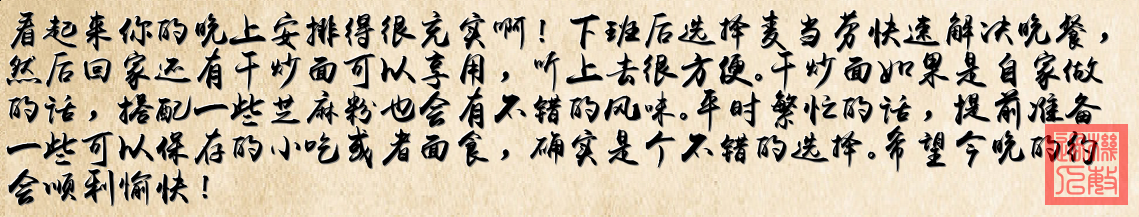 看起来你的晚上安排得很充实啊！下班后选择麦当劳快速解决晚餐，
然后回家还有干炒面可以享用，听上去很方便。干炒面如果是自家做
的话，搭配一些芝麻粉也会有不错的风味。平时繁忙的话，提前准备
一些可以保存的小吃或者面食，确实是个不错的选择。希望今晚的约
会顺利愉快！